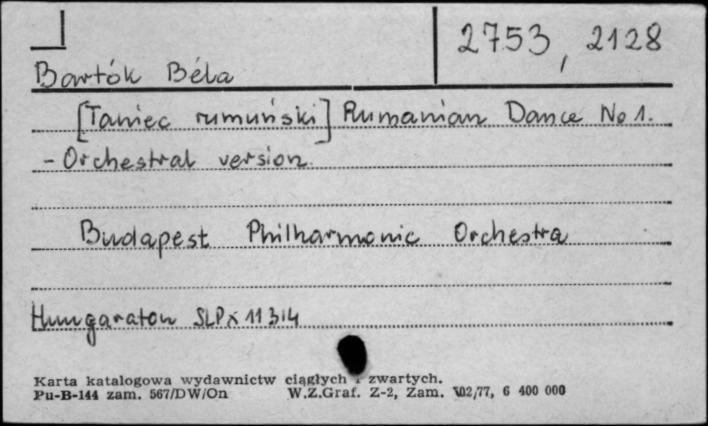 2753, 2128
Bartók Béla
[Taniec rumuński] Rumanian Dance No 1.
- Orchestral version.
Budapest Philharmonic Orchestra
Hungaraton SLPx 11314
Karta katalogowa wydawnictw ciągłych i zwartych.
Pu-B-144 zam. 567/DW/On W.Z.Graf. Z-2, Zam. 102/77, 6 400 000